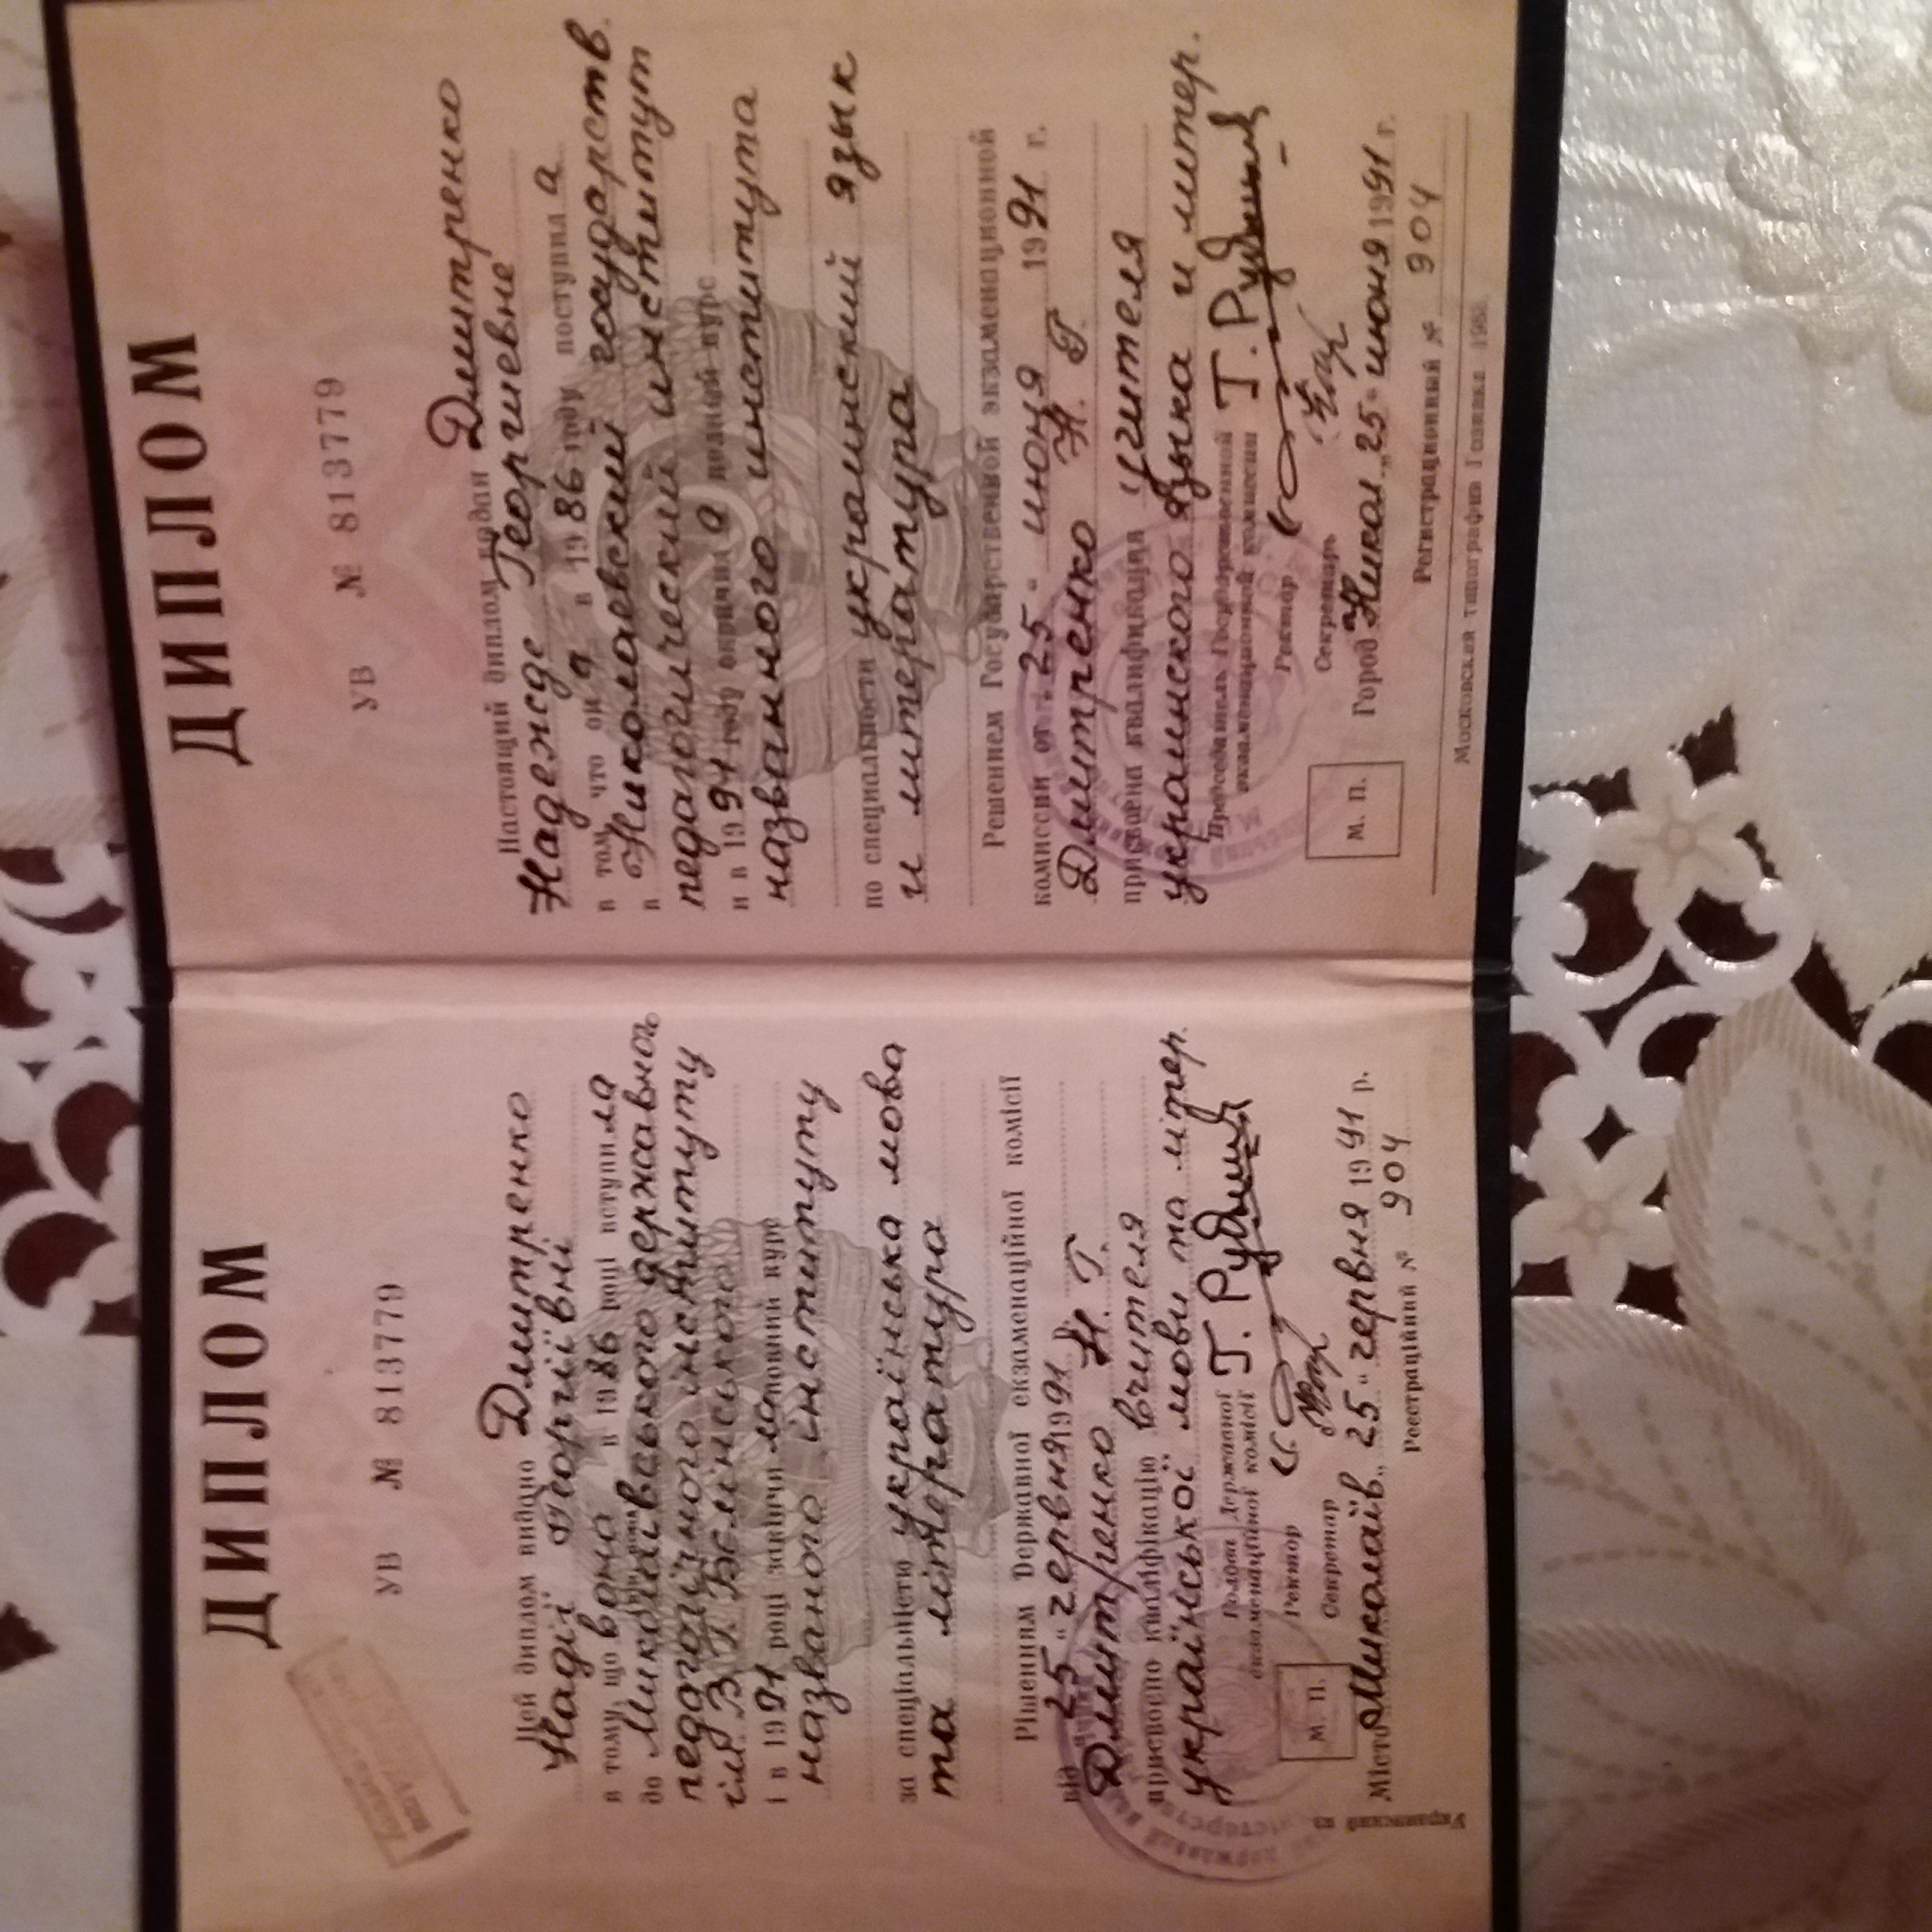 ДИПЛОМ
УВ № 813779
Цей диплом видано Дмитренко
Надії Георгіївні
в тому, що вона в 1986 році вступила
до Миколаївського державного
педагогічного інституту
ім. В. Г. Бєлінського
і в 1991 році закінчила повний курс
названого інституту
за спеціальністю українська мова
та література
Рішенням Державної екзаменаційної комісії
від 25 " червня 1991 р.
Дмитренко Н. Г.
присвоєно кваліфікацію вчителя
української мови та літер.
Голова Державної
екзаменаційної комісії Т. Руд
Ректор
Секретар
М. П.
Місто Миколаїв „ 25 " червня 1991 р.
Реєстраційний № 904
Украинский яз
ДИПЛОМ
УВ № 813779
Настоящий диплом выдан Дмитренко
Надежде Георгиевне
в том, что он а в 1986 году поступил а
в Николаевский государств.
педагогический институт
и в 1991 году окончил а полный курс
названного института
по специальности украинский язык
и литература
Решением Государственной экзаменационной
комиссии от „ 25 " июня 1991 г.
Дмитренко Н. Г.
присвоена квалификация учителя
украинского языка и литер.
Председатель Государственной
экзаменационной комиссии Т. Руд
Ректор
Секретарь
М. П.
Город Никол. „ 25 " июня 1991 г.
Регистрационный № 904
Московская типография Гознака. 198